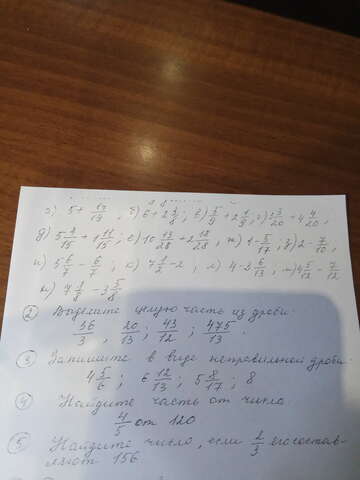 а) 5+ 13/19 ; б) 6+2 3/8 ; в) 5/9 +2 1/9 ; г) 3/20 +4 4/20 ,
д) 5 4/15 +1 11/15 ; е) 10 13/28 +2 12/28 , ж) 1- 5/17 ; з) 2- 7/10 ,
и) 5 6/7 - 6/7 ; к) 7 1/2 -2 , л) 4-2 6/13 , м) 4 5/12 - 7/12
н) 7 1/8 -3 5/8
2 Выделите целую часть из дроби:
56/3 , 20/13 ; 43/12 ; 475/13 .
3 Запишите в виде неправильной дроби:
4 5/6 ; 6 12/13 ; 5 8/17 ; 8
4 Найдите часть от числа
4/5 от 120
5 Найдите число, если 1/3 его состав-
ляют 156